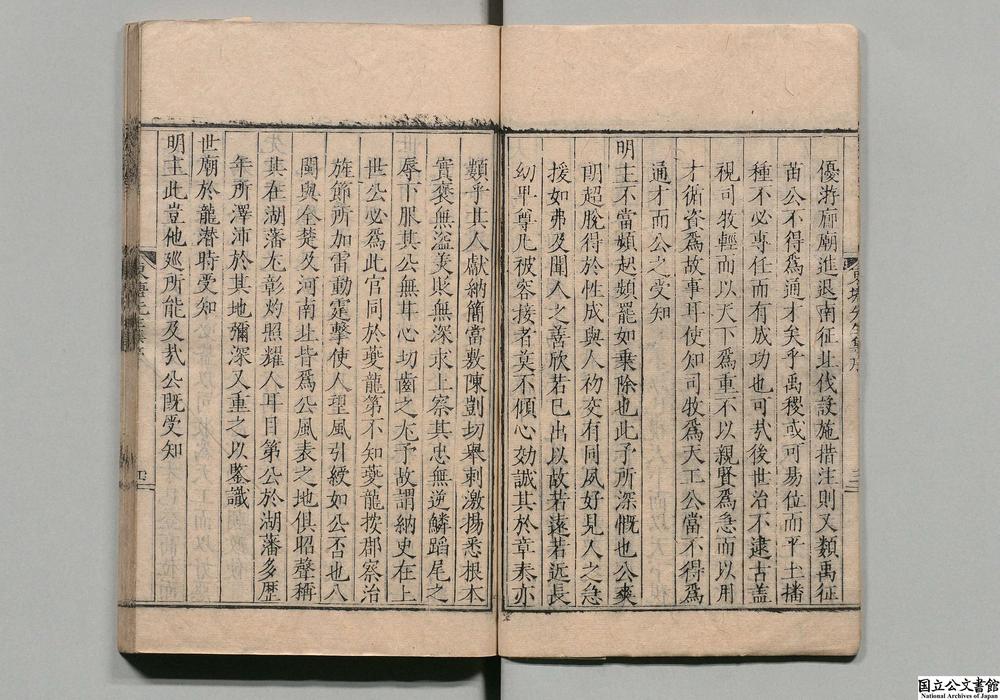 優游廊廟進退南征北伐設施措注則又類禹征
苗公不得爲通才矣乎禹稷或可易位而平土播
種不必專任而有成功也可㢤後世治不逮古盖
視司牧輕而以天下爲重不以親賢爲急而以用
才循資爲故事耳使知司牧爲天工公當不得爲
通才而公之受知
明主不當頻起頻罷如乗除也此予所深慨也公爽
朗超脫得於性成與人初交有同夙好見人之急
援如弗及聞人之善欣若已出以故若遠若近長
幼卑尊凡被容接者莫不傾心効誠其於章奏亦
類乎其人獻納簡當敷陳剴切舉刺激揚悉根木
實褒無溢美貶無深求上察其忠無逆鱗蹈尾之
辱下服其公無耳心切齒之尤予故謂納史在上
世公必爲此官同於夔龍第不知夔龍按郡察治
旌節所加雷動霆擊使人望風引綬如公否也八
閩與全楚及河南北皆爲公風表之地俱昭聲稱
其在湖藩尤彰灼照耀人耳目第公於湖藩多歷
年所澤沛於其地彌深又重之以鑒識
世廟於龍潜時受知
明主此豈他廵所能及㢤公既受知
国立公文書館
National Archives of Japan